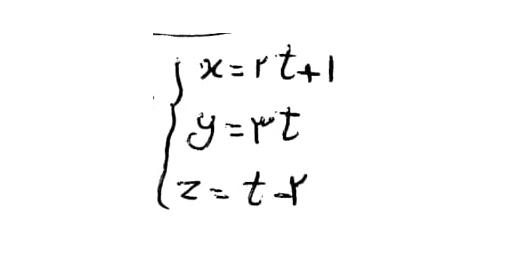 x = ۲t+۱
y = ۳t
z = t-۲